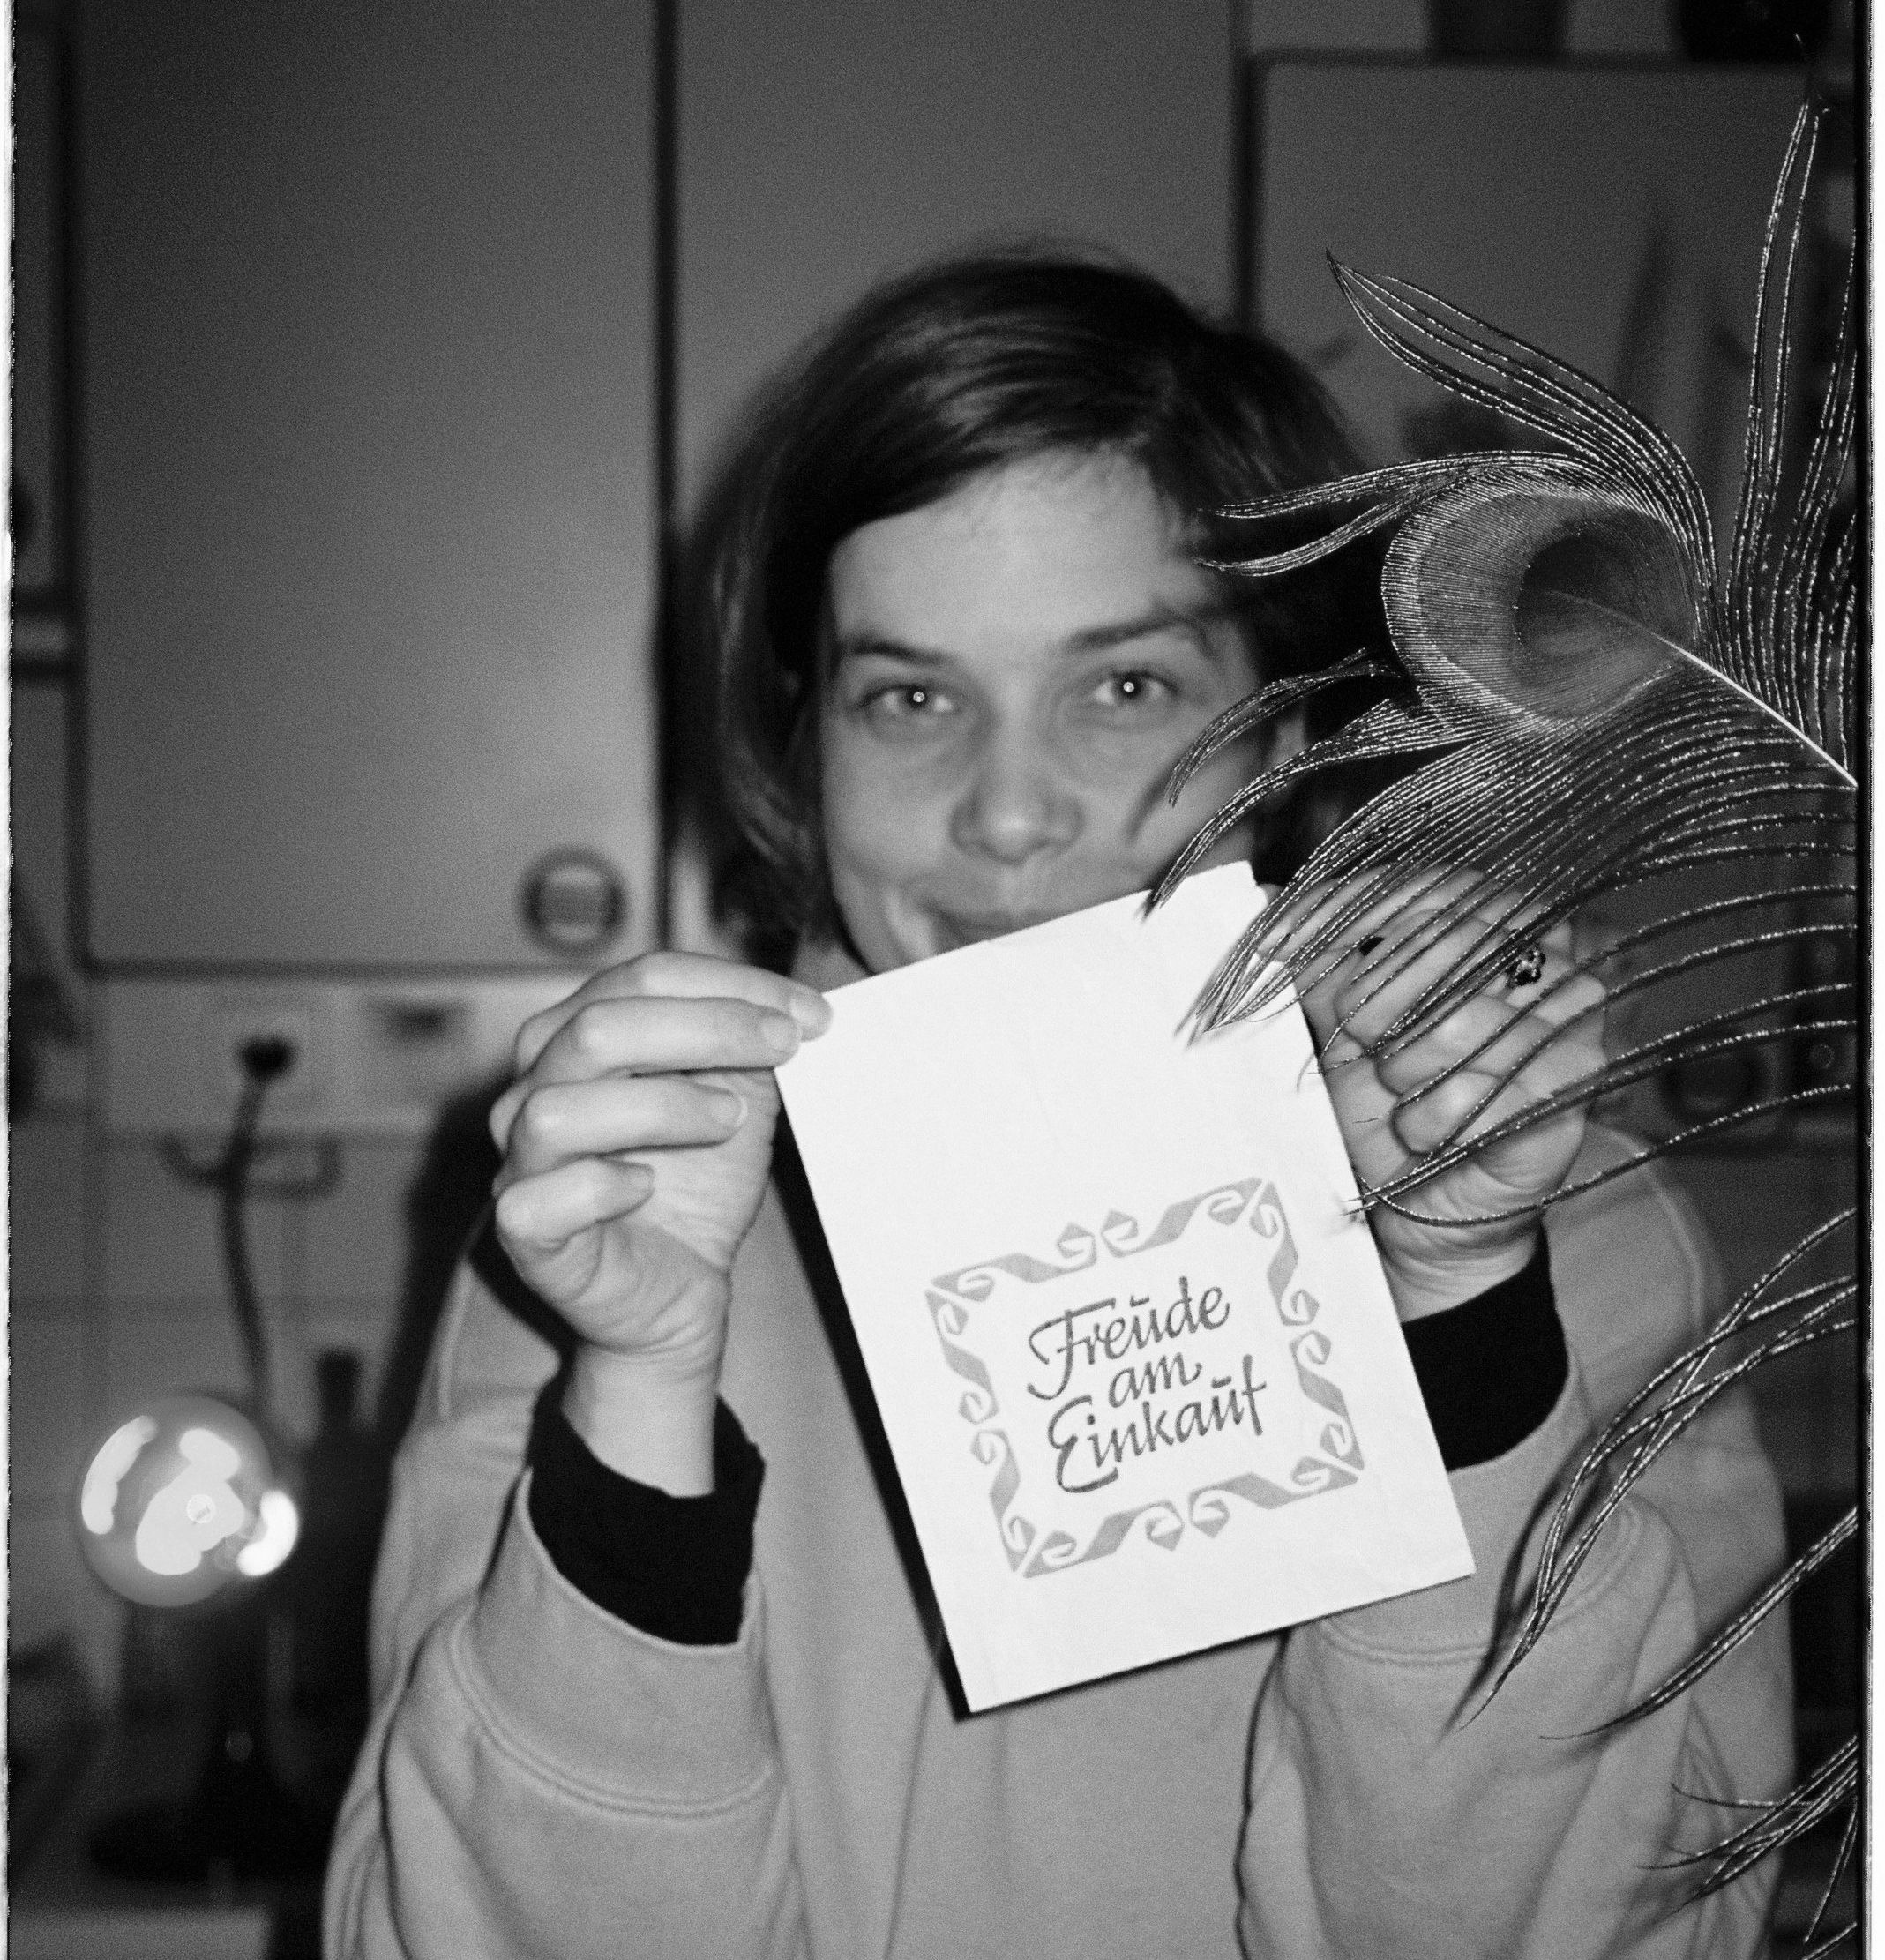 Freude
am
Einkauf